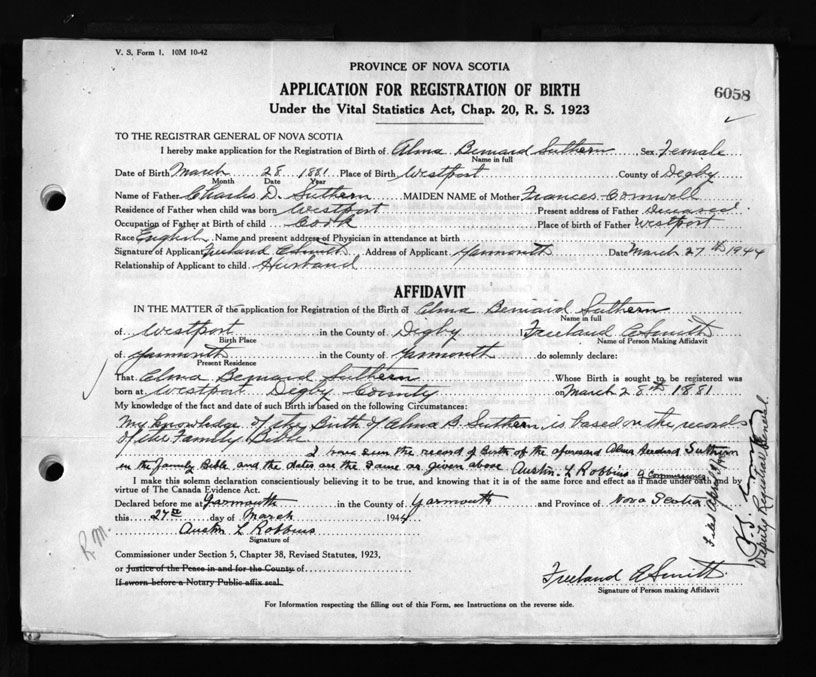 V. S. Form 1. 10M 10-42
PROVINCE OF NOVA SCOTIA
APPLICATION FOR REGISTRATION OF BIRTH
6058
Under the Vital Statistics Act, Chap. 20, R. S. 1923
TO THE REGISTRAR GENERAL OF NOVA SCOTIA
I hereby make application for the Registration of Birth of Alma Bernard Suthern Sex Female
Name in full
Date of Birth March 28 1881 Place of Birth Westport County of Digby
Month Date Year
Name of Father Charles D. Suthern MAIDEN NAME of Mother Frances Cornwell
Residence of Father when child was born Westport Present address of Father Deceased
Occupation of Father at Birth of child Cook Place of birth of Father Westport
Race English Name and present address of Physician in attendance at birth
Signature of Applicant Freeland A Smith Address of Applicant Yarmouth Date March 27th 1944
Relationship of Applicant to child Husband
AFFIDAVIT
IN THE MATTER of the application for Registration of the Birth of Alma Bernard Suthern
Name in full
of Westport in the County of Digby I Freeland A Smith
Birth Place Name of Person Making Affidavit
of Yarmouth in the County of Yarmouth do solemnly declare:
Present Residence
That Alma Bernard Suthern Whose Birth is sought to be registered was
born at Westport Digby County on March 28th 1881
My knowledge of the fact and date of such Birth is based on the following Circumstances:
My knowledge of the Birth of Alma B. Suthern, is based on the records
of the Family Bible
I have seen the record of Birth of the aforesaid Alma Suthern
in the family Bible, and the dates are the same as given above Austin L Robbins a Commissioner
I make this solemn declaration conscientiously believing it to be true, and knowing that it is of the same force and effect as if made under oath and by
virtue of The Canada Evidence Act.
Declared before me at Yarmouth in the County of Yarmouth and Province of Nova Scotia
this 27th day of March 1944
Austin L Robbins
Signature of
R.M.
Commissioner under Section 5, Chapter 38, Revised Statutes, 1923,
or Justice of the Peace in and for the County of
If sworn before a Notary Public affix seal.
Freeland A Smith
Signature of Person making Affidavit
For Information respecting the filling out of this Form, see Instructions on the reverse side.
Deputy Registrar General.